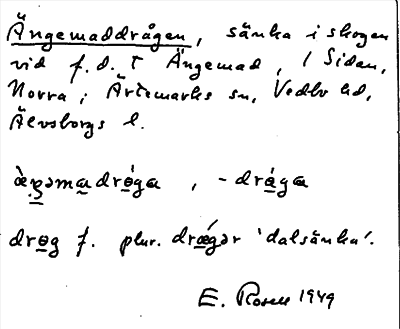 Ängemaddrågen, sänka i skogen
vid f.d. t Ängemad, / Sidan,
Norra i Ärtemarks sn, Vedbo hd,
Älvsborgs l.
, -drága
drog f. plur. drǽgər 'dalsänka'.
E. Rosell 1949